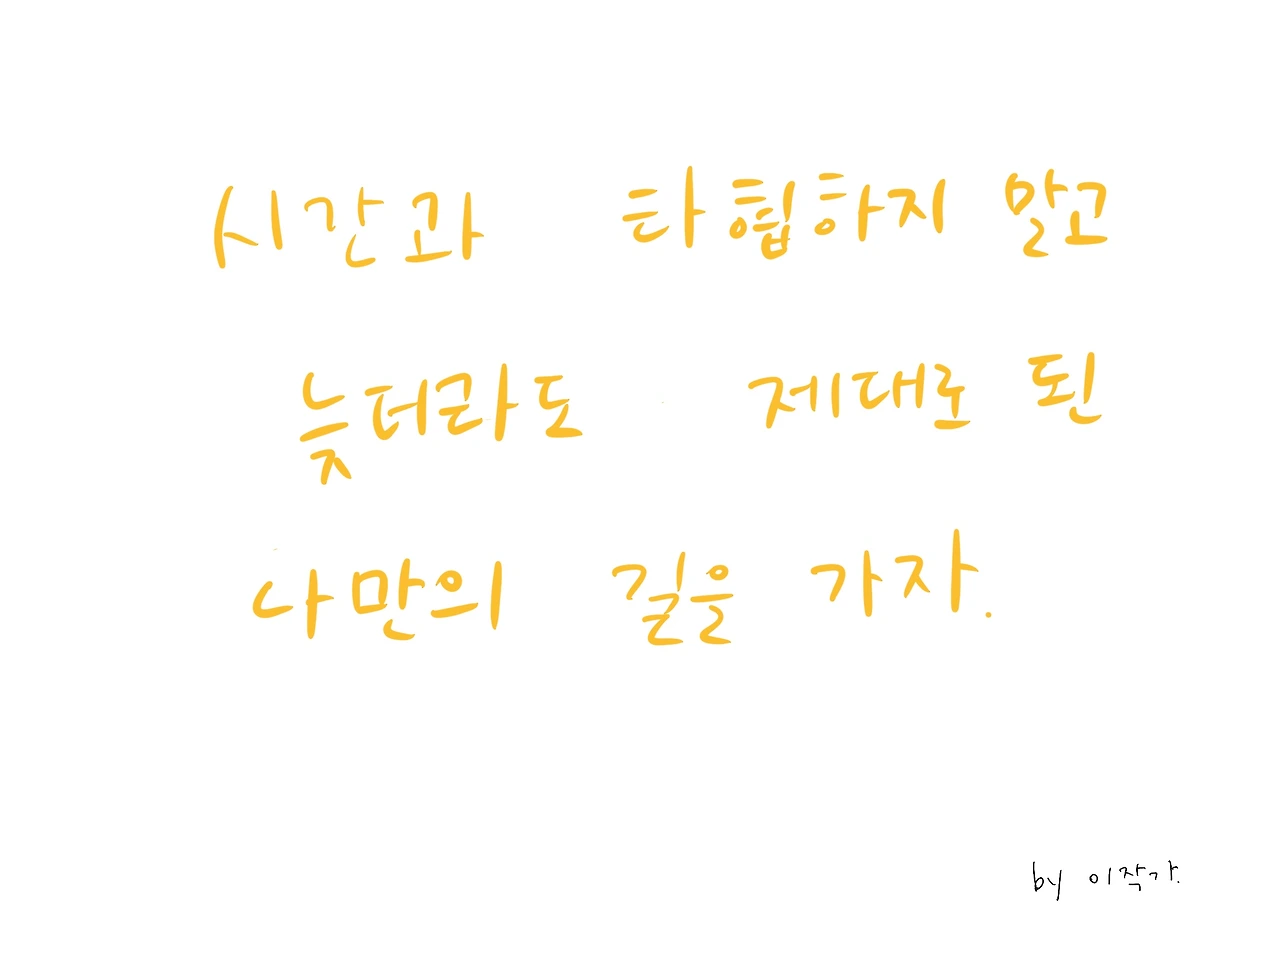 시간과 타협하지 말고
늦더라도 제대로 된
나만의 길을 가자.
by 이작가.